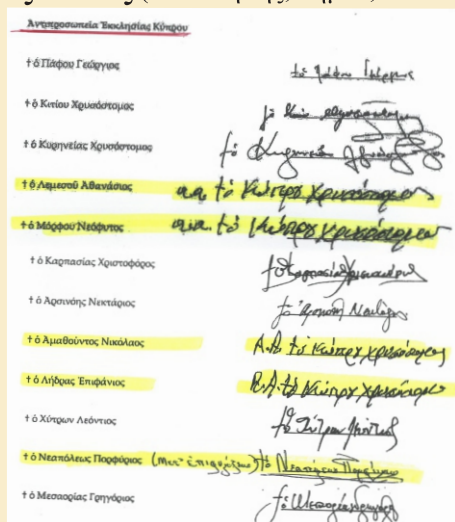 Ἀντιπροσωπεία Ἐκκλησίας Κύπρου
† ὁ Πάφου Γεώργιος †ὁ Πάφου Γεώργιος
† ὁ Κιτίου Χρυσόστομος †ὁ
† ὁ Κυρηνείας Χρυσόστομος †ὁ Κυρηνείας
† ὁ Λεμεσοῦ Ἀθανάσιος α.α. †ὁ Κύπρου Χρυσόστομος
† ὁ Μόρφου Νεόφυτος α.α. †ὁ Κύπρου Χρυσόστομος
† ὁ Καρπασίας Χριστοφόρος †ὁ Καρπασίας Χριστοφόρος
† ὁ Ἀρσινόης Νεκτάριος †ὁ Ἀρσινόης Νεκτάριος
† ὁ Ἀμαθοῦντος Νικόλαος Α.Α. †ὁ Κύπρου Χρυσόστομος
† ὁ Λήδρας Ἐπιφάνιος Α.Α. †ὁ Κύπρου Χρυσόστομος
† ὁ Χύτρων Λεόντιος †ὁ Χύτρων Λεόντιος
† ὁ Νεαπόλεως Πορφύριος †ὁ Νεαπόλεως Πορφύριος
† ὁ Μεσαορίας Γρηγόριος †ὁ Μεσαορίας Γρηγόριος